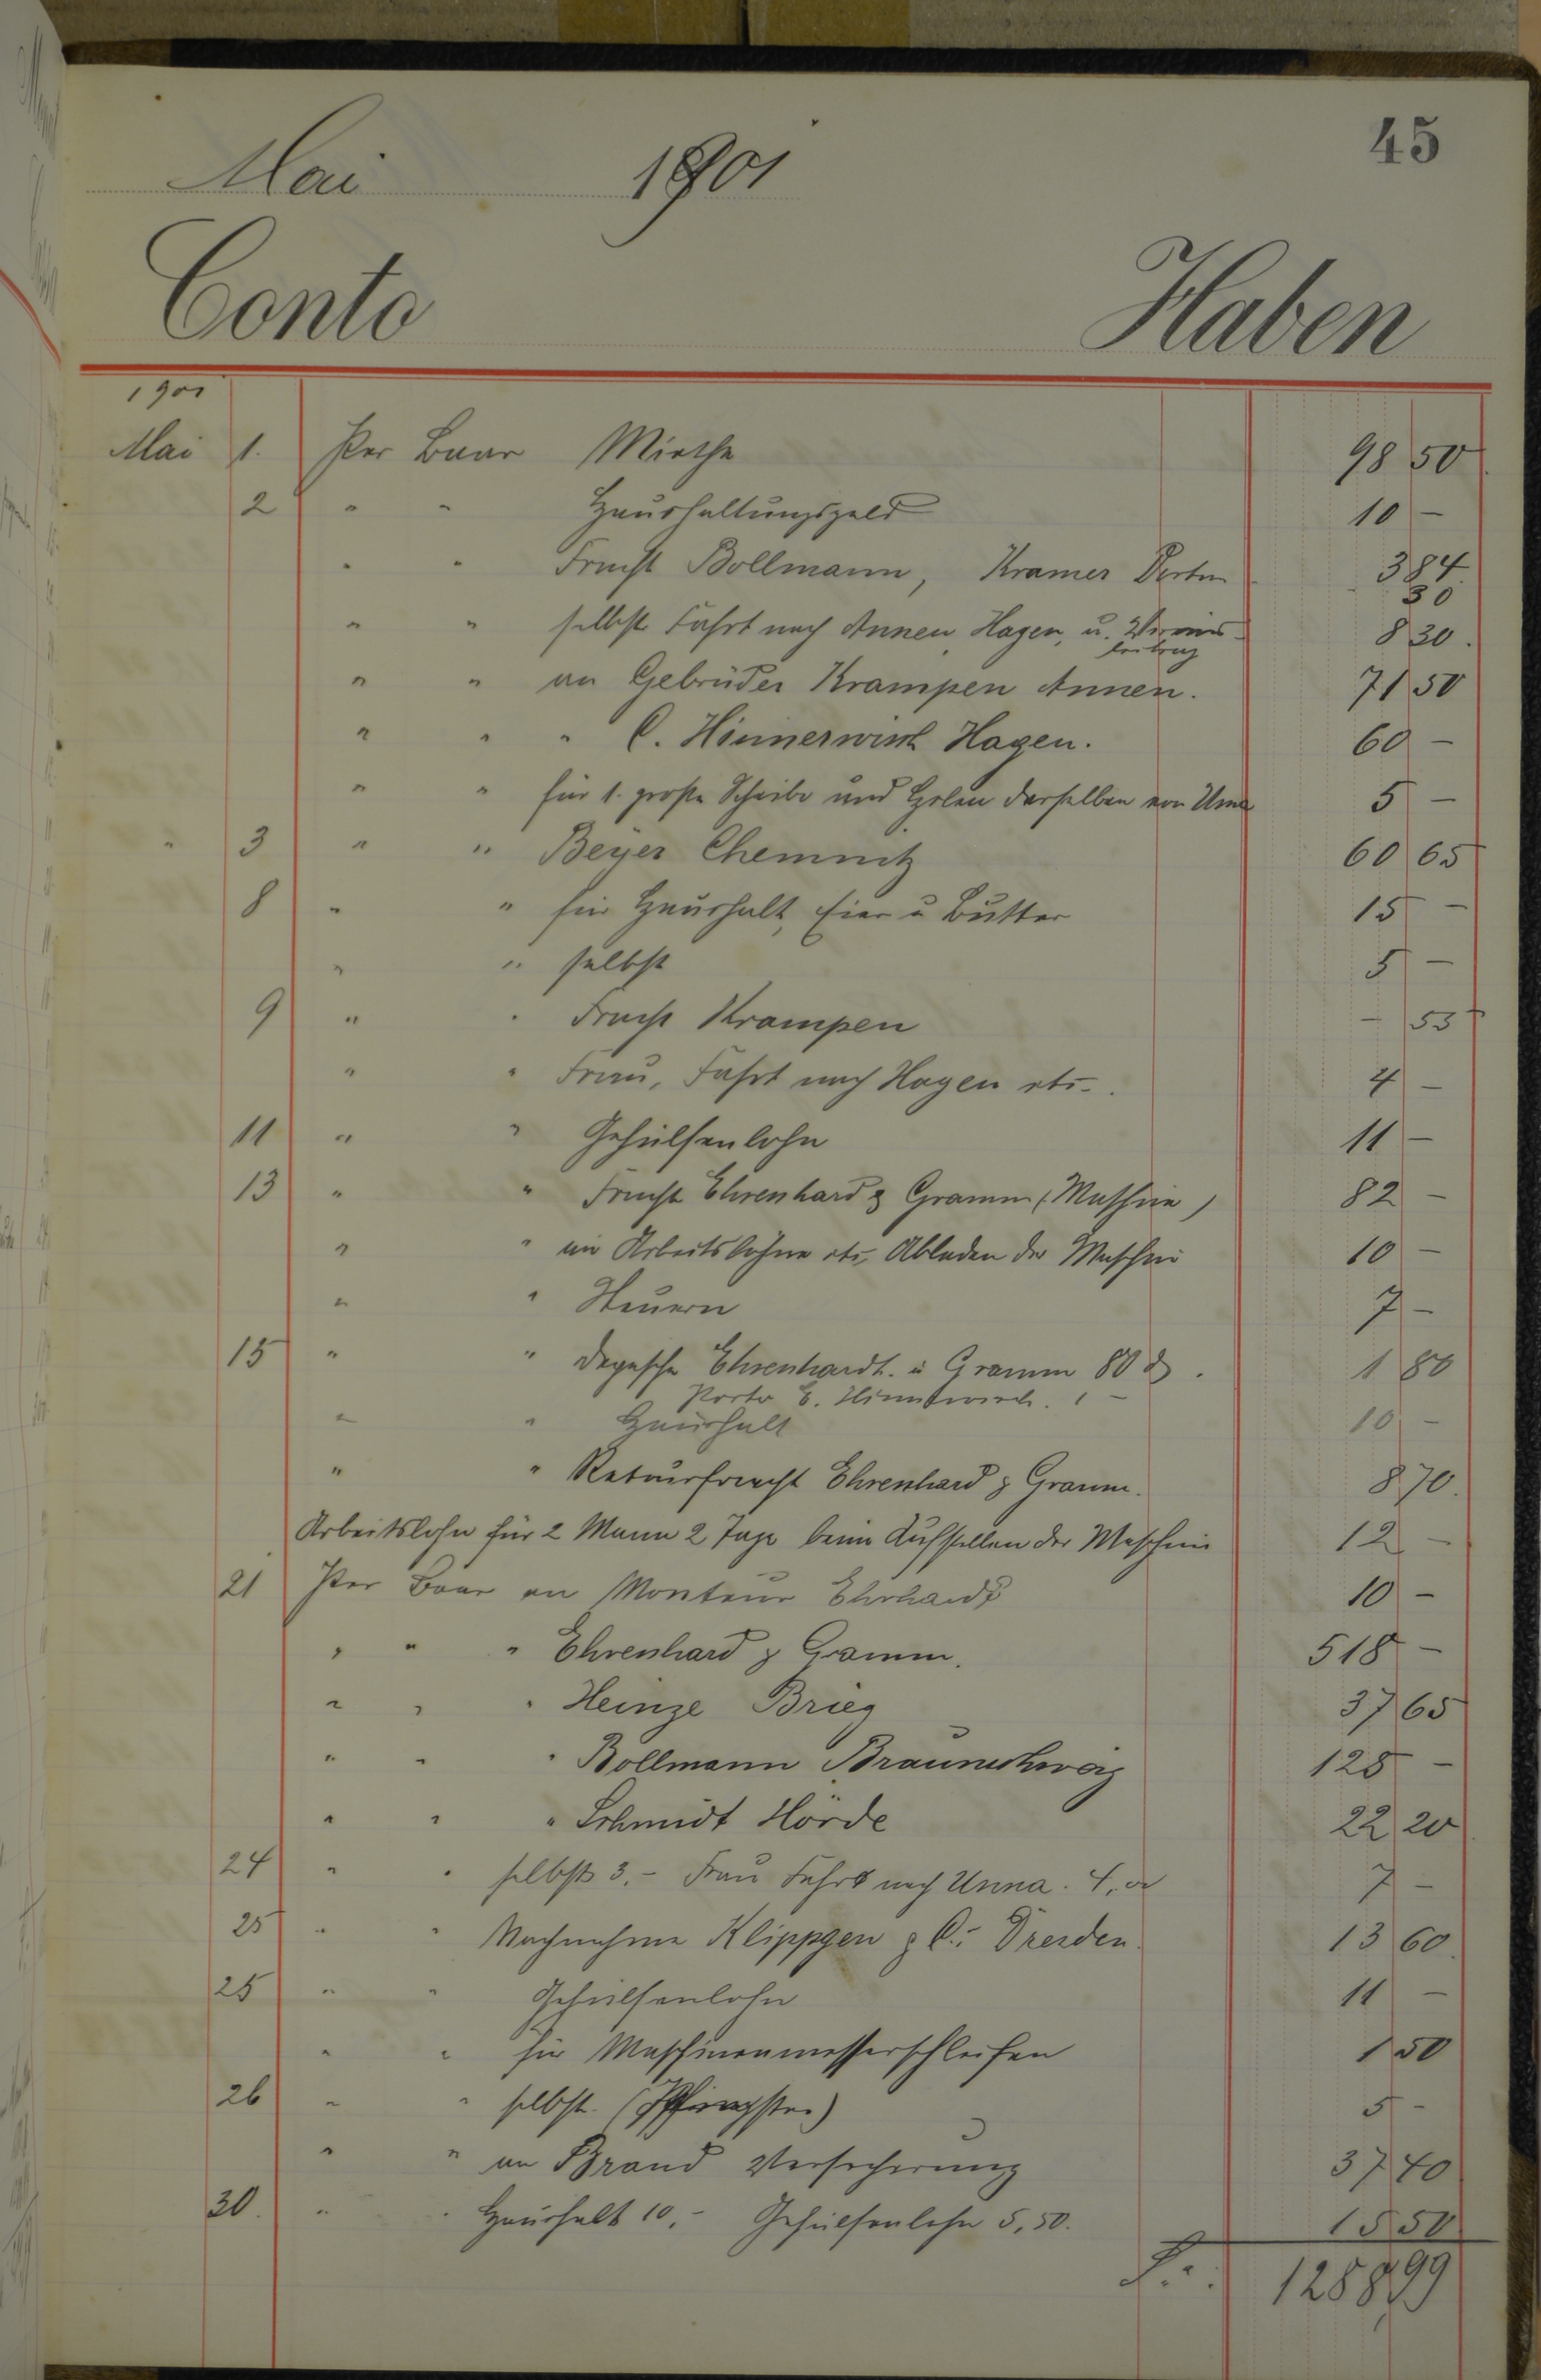 45
Mai 1901
Conto Haben
1901
Mai 1. Per Baar Miethe 98 50
2 " " Haushaltungsgeld 10 –
" " Fracht Bollmann, Kramer Porto 3 84
30
" " selbst Fahrt nach Annen, Hagen, u. Vereins- 8 30.
beitrag
" " an Gebrüder Krampen Annen. 71 50
" " " C. Hinnerwisch Hagen. 60 –
" " für 1. große Scheibe und Holen derselben von Unna 5 –
" 3 " " Beyer Chemnitz 60 65
8 " " für Haushalt, Eier u Butter 15 –
" " selbst 5 –
9 " " Fracht Krampen – 55
" " Frau, Fahrt nach Hagen etc. 4 –
11 " " Gehülfenlohn 11 –
13 " " Fracht Ehrenhard & Gramm (Maschine) 82 –
" " an Arbeitslohne etc, Abladen der Maschine 10 –
" " Steuern 7 –
15 " " Depesche Ehrenhardt. u Gramm 80 ₰. 1 80
Porto C. Hinnerwisch. 1 –
" " Haushalt 10 –
" " Retourfracht Ehrenhard & Gramm. 8 70.
Arbeitslohn für 2 Mann 2 Tage beim Aufstellen der Maschine 12 –
21 Per Baar an Monteur Ehrhardt 10 –
" " " Ehrenhard & Gramm. 518 –
" " " Heinze Brieg 37 65
" " " Bollmann Braunschweig 125 –
" " " Schmidt Hörde 22 20
24 " " selbst 3.– Frau Fahrt nach Unna. 4, 7 –
25 " " Nachnahme Klippgen & C.: Dresden. 13 60.
25 " " Gehülfenlohn 11 –
" " für Maschinenmesserschleifen 1 50
26 " " selbst. (Pfingsten) 5 –
" " an Brand Versicherung 37 40
30. " " Haushalt 10,– Gehülfenlohn 5,50. 15 50
1288,99